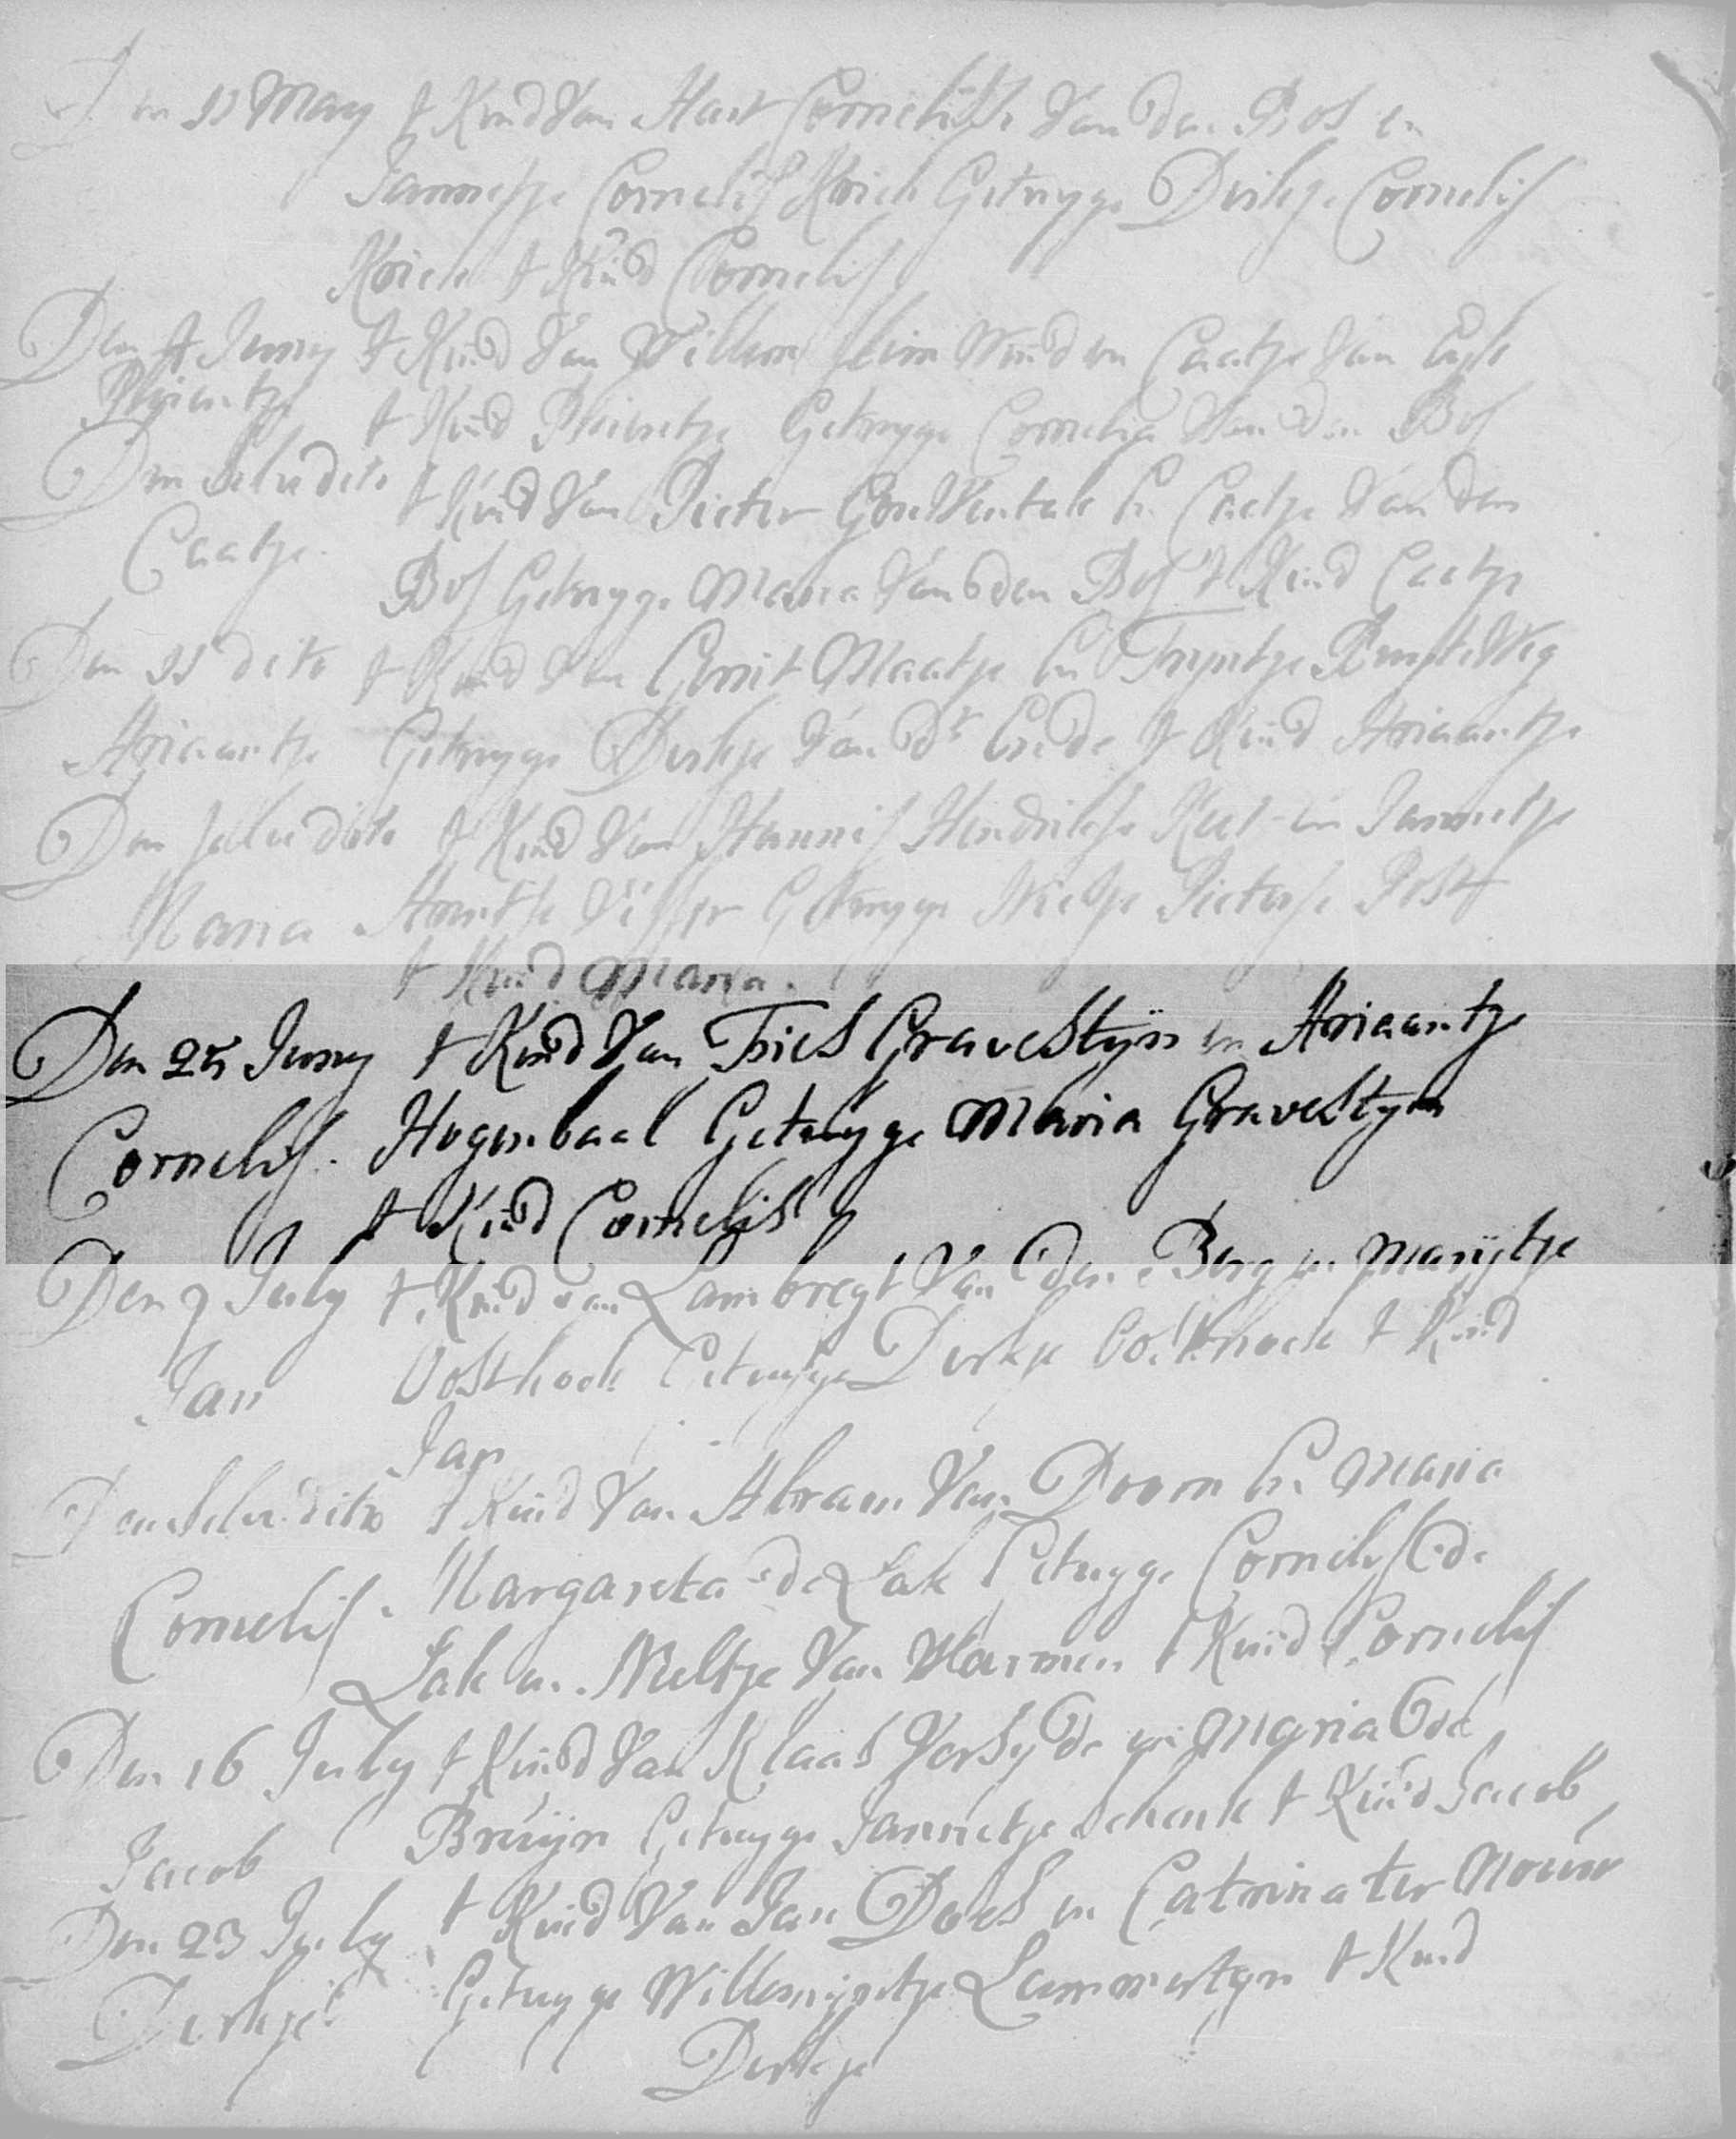 Den 11 May t Kind Van Cornelisse Van den Bos en
Jannetje Cornelis Getuyge Dirkje Cornelis
t Kind Cornelis
Den 4 Juny t Kind Van Willem en Caatje Van
t Kind Getuyge Cornelia Van den Bos
Den selve dito t Kind Van Pieter en Caatje Van den
Caatje
Bos Getuyge Maria Van den Bos t Kind Caatje
Den 11 dito t Kind Van Gerrit Maatje en Tryntje
Ariaantje Getuyge Dirkje Van dr t Kind Ariaantje
Den selve dito t Kind Van Hannis Hendrikse en Jannetje
Maria Visser Getuyge Pieterse Post
t Kind Maria.
Den 25 Juny t Kind Van Fries Gravestyn en Ariaantje
Cornelis. Hogenbaal Getuyge Maria Gravestyn
t Kind Cornelis
Den 9 July t Kind van Lambregt Van den Berg en Marijtje
Jan Oosthoek Getuyge Dirkje Oosthoek t Kind
Jan
Den selve dito t Kind Van Abram Van Doorn En Maria
Cornelis. Margareta de Lak Getuyge Cornelis de
Lak en Neeltje Van Harmen t Kind Cornelis
Den 16 July t Kind Van Klaas Versyde en Maria de
Jacob Bruijn Getuyge Jannetje Schenk t Kind Jacob
Den 23 July t Kind Van Jan Does en Catrina ter
Dirkje Getuyge Willemijntje Lammertyn t Kind
Dirkje